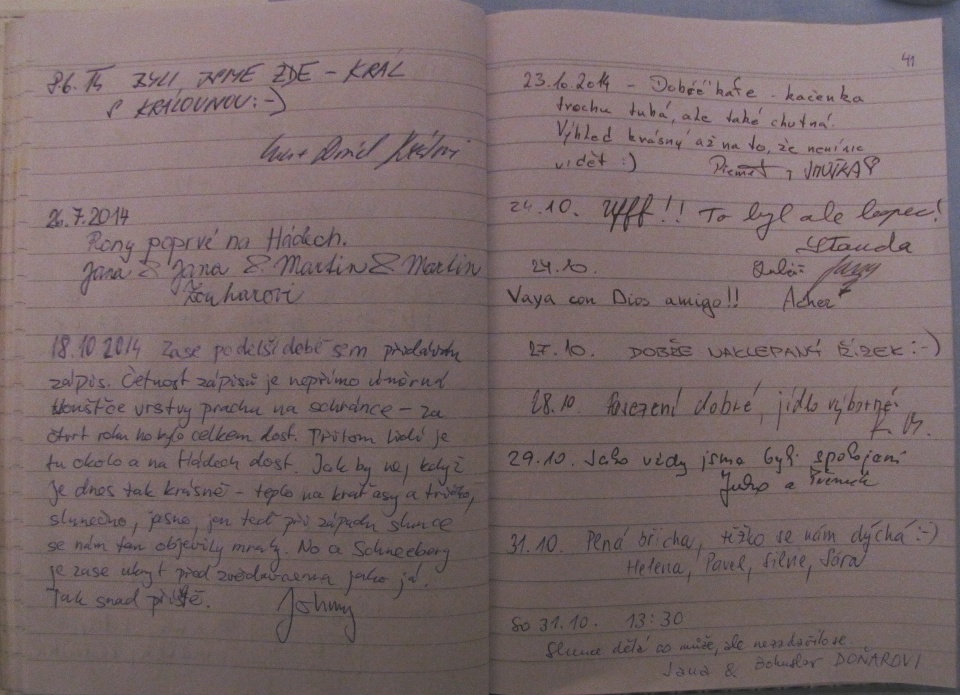 8.6. 14 ZYLI JSME ZDE - KRÁL
S KRÁLOVNOU :-)
26.7.2014
Rony poprvé na Hádech.
Jana & Jana & Martin & Martin
Zouharovi
18.10 2014 Zase po delší době sem
zápis. Četnost zápisů je nepřímo úměrná
tloušťce vrstvy prachu na schránce - za
čtvrt roku ho bylo celkem dost. Přitom lidí je
tu okolo a na Hádech dost. Jak by ne, když
je dnes tak krásně - teplo na kraťasy a tričko,
slunečno, jasno, jen teď při západu slunce
se nám tam objevily mraky. No a Schneeberg
je zase ukryt před zvědavcema jako já.
Tak snad příště.
Johny
41
23.10.2014 - Dobré kafe - kačenka
trochu tuhá, ale také chutná.
Výhled krásný až na to, že není nic
vidět :)
24.10. Ufff!! To byl ale kopec!
Standa
24.10.
Vaya con Dios amigo!!
27.10. DOBŘE NAKLEPANÝ ŘÍZEK :-)
28.10 Posezení dobré, jídlo výborné
29.10. Jako vždy jsme byli spokojeni
31.10. Plná břicha, těžko se nám dýchá :-)
Helena, Pavel, Silne, Sára
So 31.10. 13:30
Slunce dělá co může, ale nezadařilo se.
Jana & Bohuslav DOŇAROVI